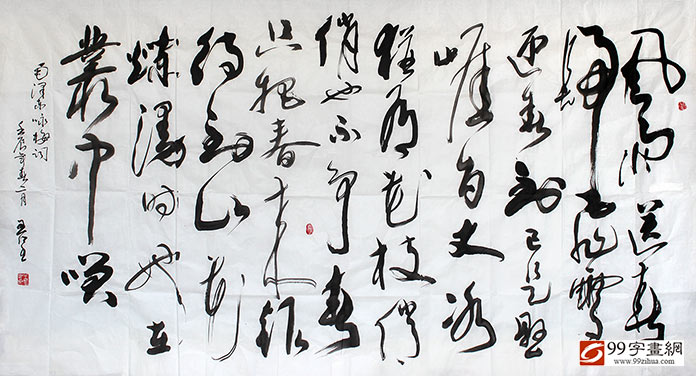 风雨送春
归飞雪
迎春到已是悬
崖百丈冰
犹有花枝俏
俏也不争春
只把春来报
待到山花
烂漫时她在
丛中笑
毛泽东咏梅词
壬辰年春二月
99字畫網
www.99zihua.com